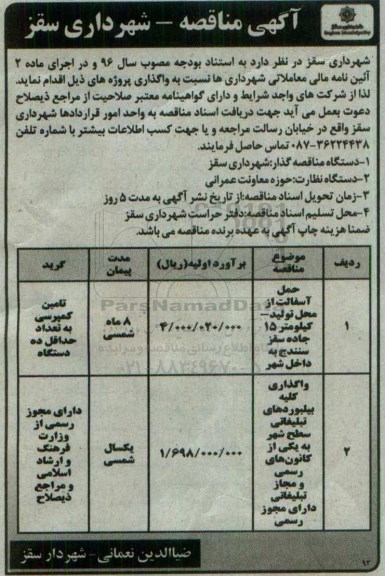 آگهی مناقصه - شهرداری سقز
شهرداری سقز در نظر دارد به استناد بودجه مصوب سال ۹۶ و در اجرای ماده ۲
آئین نامه مالی معاملاتی شهرداری ها نسبت به واگذاری پروژه های ذیل اقدام نماید.
لذا از شرکت های واجد شرایط و دارای گواهینامه معتبر صلاحیت از مراجع ذیصلاح
دعوت بعمل می آید جهت دریافت اسناد مناقصه به واحد امور قراردادها شهرداری
سقز واقع در خیابان رسالت مراجعه و یا جهت کسب اطلاعات بیشتر با شماره تلفن
۰۸۷-۳۶۲۲۴۴۳۸ تماس حاصل فرمایند.
۱-دستگاه مناقصه گذار:شهرداری سقز
۲-دستگاه نظارت:حوزه معاونت عمرانی
۳-زمان تحویل اسناد مناقصه:از تاریخ نشر آگهی به مدت ۵ روز
۴-محل تسلیم اسناد مناقصه:دفتر حراست شهرداری سقز
ضمنا هزینه چاپ آگهی به عهده برنده مناقصه می باشد.
ردیف
موضوع
مناقصه
برآورد اولیه(ریال)
مدت
پیمان
گرید
۱
حمل
آسفالت از
محل تولید-
کیلومتر ۱۵
جاده سقز
سنندج به
داخل شهر
۴/۰۰۰/۰۲۰/۰۰۰
۸ ماه
شمسی
تامین
کمپرسی
به تعداد
حداقل ده
دستگاه
۲
واگذاری
کلیه
بیلبوردهای
تبلیغاتی
سطح شهر
به یکی از
کانون‌های
رسمی
و مجاز
تبلیغاتی
دارای مجوز
رسمی
۱/۶۹۸/۰۰۰/۰۰۰
یکسال
شمسی
دارای مجوز
رسمی از
وزارت
فرهنگ
و ارشاد
اسلامی
و مراجع
ذیصلاح
ضیاالدین نعمانی - شهردار سقز
ParsNamadData
۰۲۱-۸۸۳۴۹۶۷۰-۵